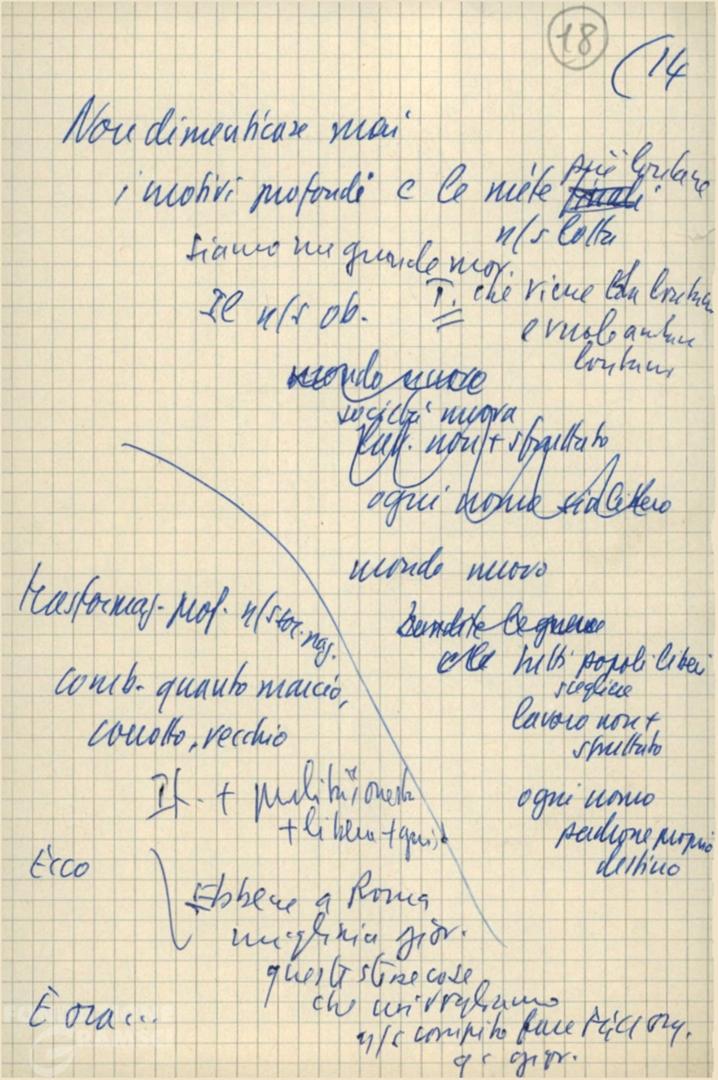 18
(14
Non dimenticare mai
i motivi profondi e le mète più lontane
n/s lotta
siamo un grande mov.
I. che viene da lontano
e vuole andare
lontano
Il n/s ob.
mondo nuovo
società nuova
lav. non + sfruttato
ogni uomo sia libero
mondo nuovo
bandite le guerre
tutti popoli liberi
scegliere
lavoro non +
sfruttato
ogni uomo
padrone proprio
destino
trasformaz. prof. n/s
comb. quanto marcio,
corrotto, vecchio
It. + pulita + onesta
+ libera + giusta
Ecco
Ebbene a Roma
migliaia giov.
queste stesse cose
che noi vogliamo
n/s compito fare
giov.
È ora...